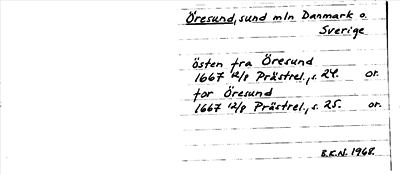 Öresund, sund mln Danmark o.
Sverige
östen fra Öresund
1667 12/8 Prästrel., s. 24. or.
for Öresund
1667 12/8 Prästrel., s. 25. or.
B.E.N. 1968.